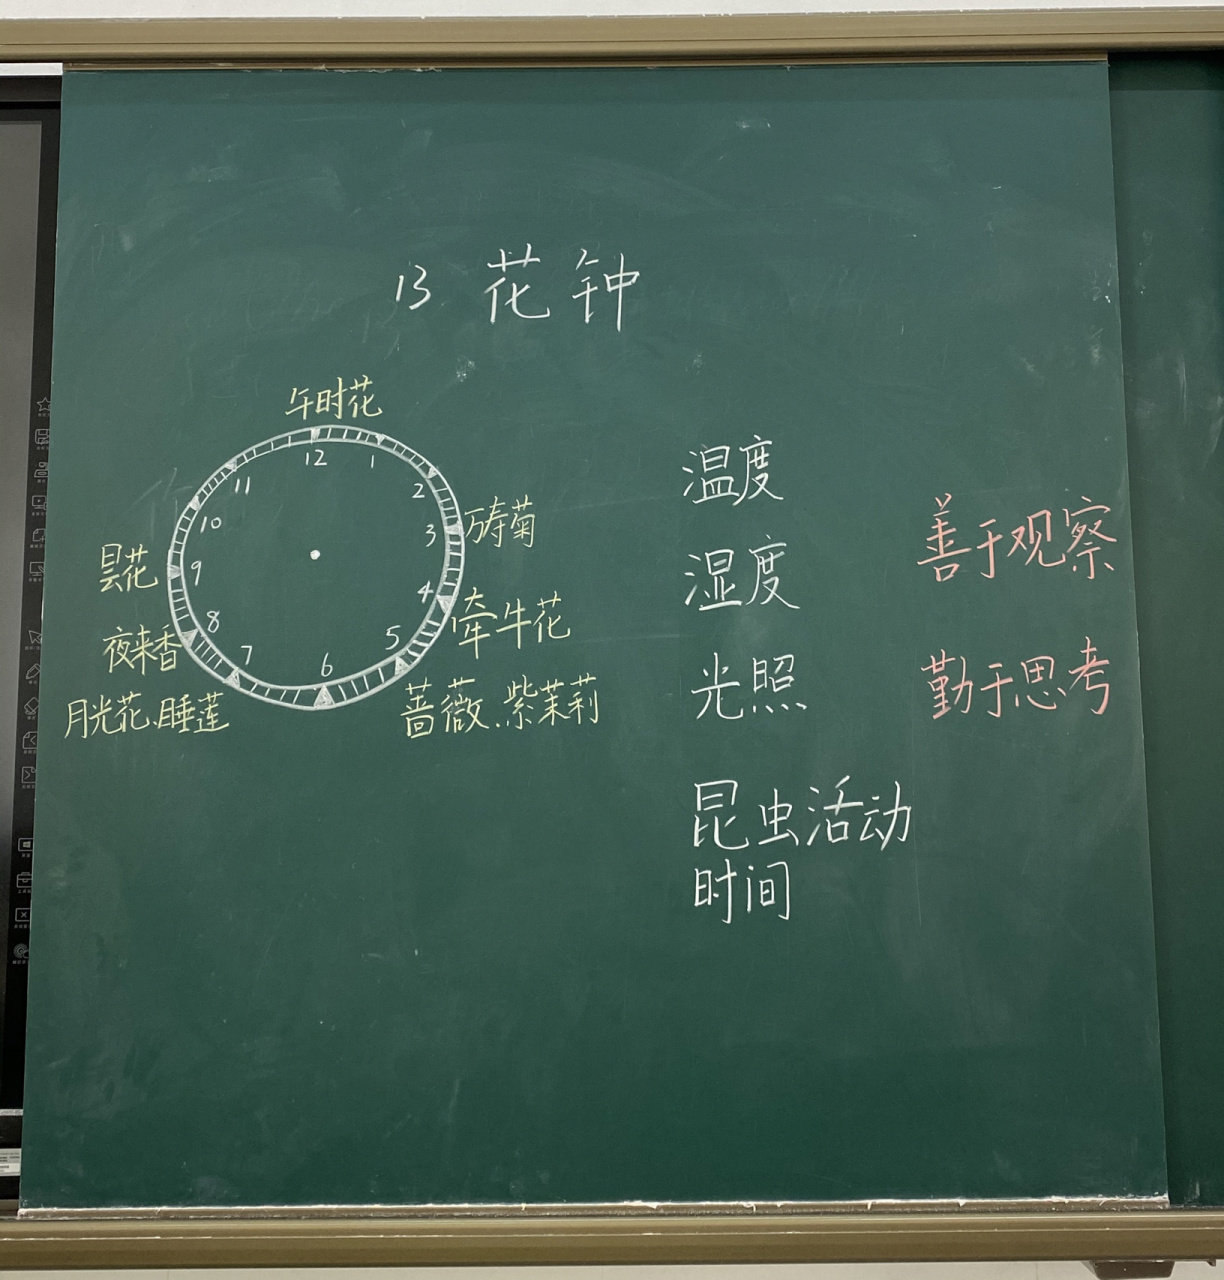 13 花钟
午时花
12
1
2
3
4
5
6
7
8
9
10
11
万寿菊
牵牛花
蔷薇.紫茉莉
月光花.睡莲
夜来香
昙花
温度
湿度
光照
昆虫活动
时间
善于观察
勤于思考